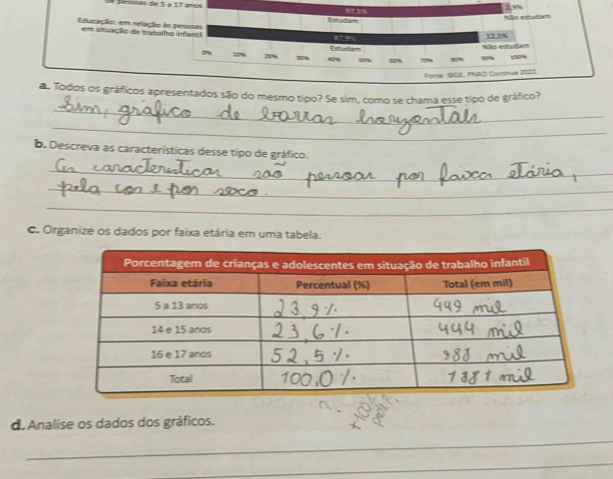 de pessoas de 5 a 17 anos
97,1%
Estudam
Não estudam
Educação: em relação às pessoas
em situação de trabalho infantil
87,9%
12,1%
Estudam
Não estudam
0% 10% 20% 30% 40% 50% 60% 70% 80% 90% 100%
Fonte: IBGE, PNAD Contínua 2022.
a. Todos os gráficos apresentados são do mesmo tipo? Se sim, como se chama esse tipo de gráfico?
Sim, gráfico de barras horizontais
b. Descreva as características desse tipo de gráfico.
As características são pessoas por faixa etária,
pela cor e por sexo.
c. Organize os dados por faixa etária em uma tabela.
Porcentagem de crianças e adolescentes em situação de trabalho infantil
Faixa etária Percentual (%) Total (em mil)
5 a 13 anos 23,9%. 449 mil
14 e 15 anos 23,6%. 444 mil
16 e 17 anos 52,5%. 988 mil
Total 100,0%. 1881 mil
d. Analise os dados dos gráficos.